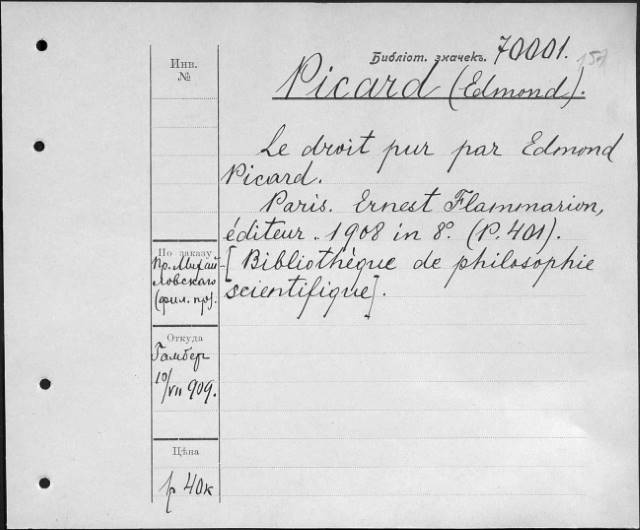 Библіот. значекъ. 70001.
157
Picard (Edmond).
Инв.
№
Le droit pur par Edmond
Picard.
Paris. Ernest Flammarion,
éditeur. 1908 in 8°. (P. 401).
[Bibliothèque de philosophie
scientifique].
По заказу
Пр. Михай-
ловскаго
(фил. пр).
Откуда
Гамбер
10/VII 909.
Цѣна
40к